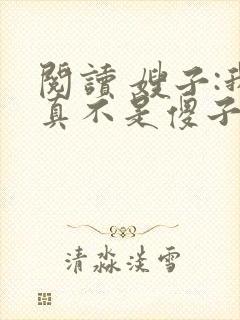 閱讀 嫂子:我
真不是傻子
清淼淡雪